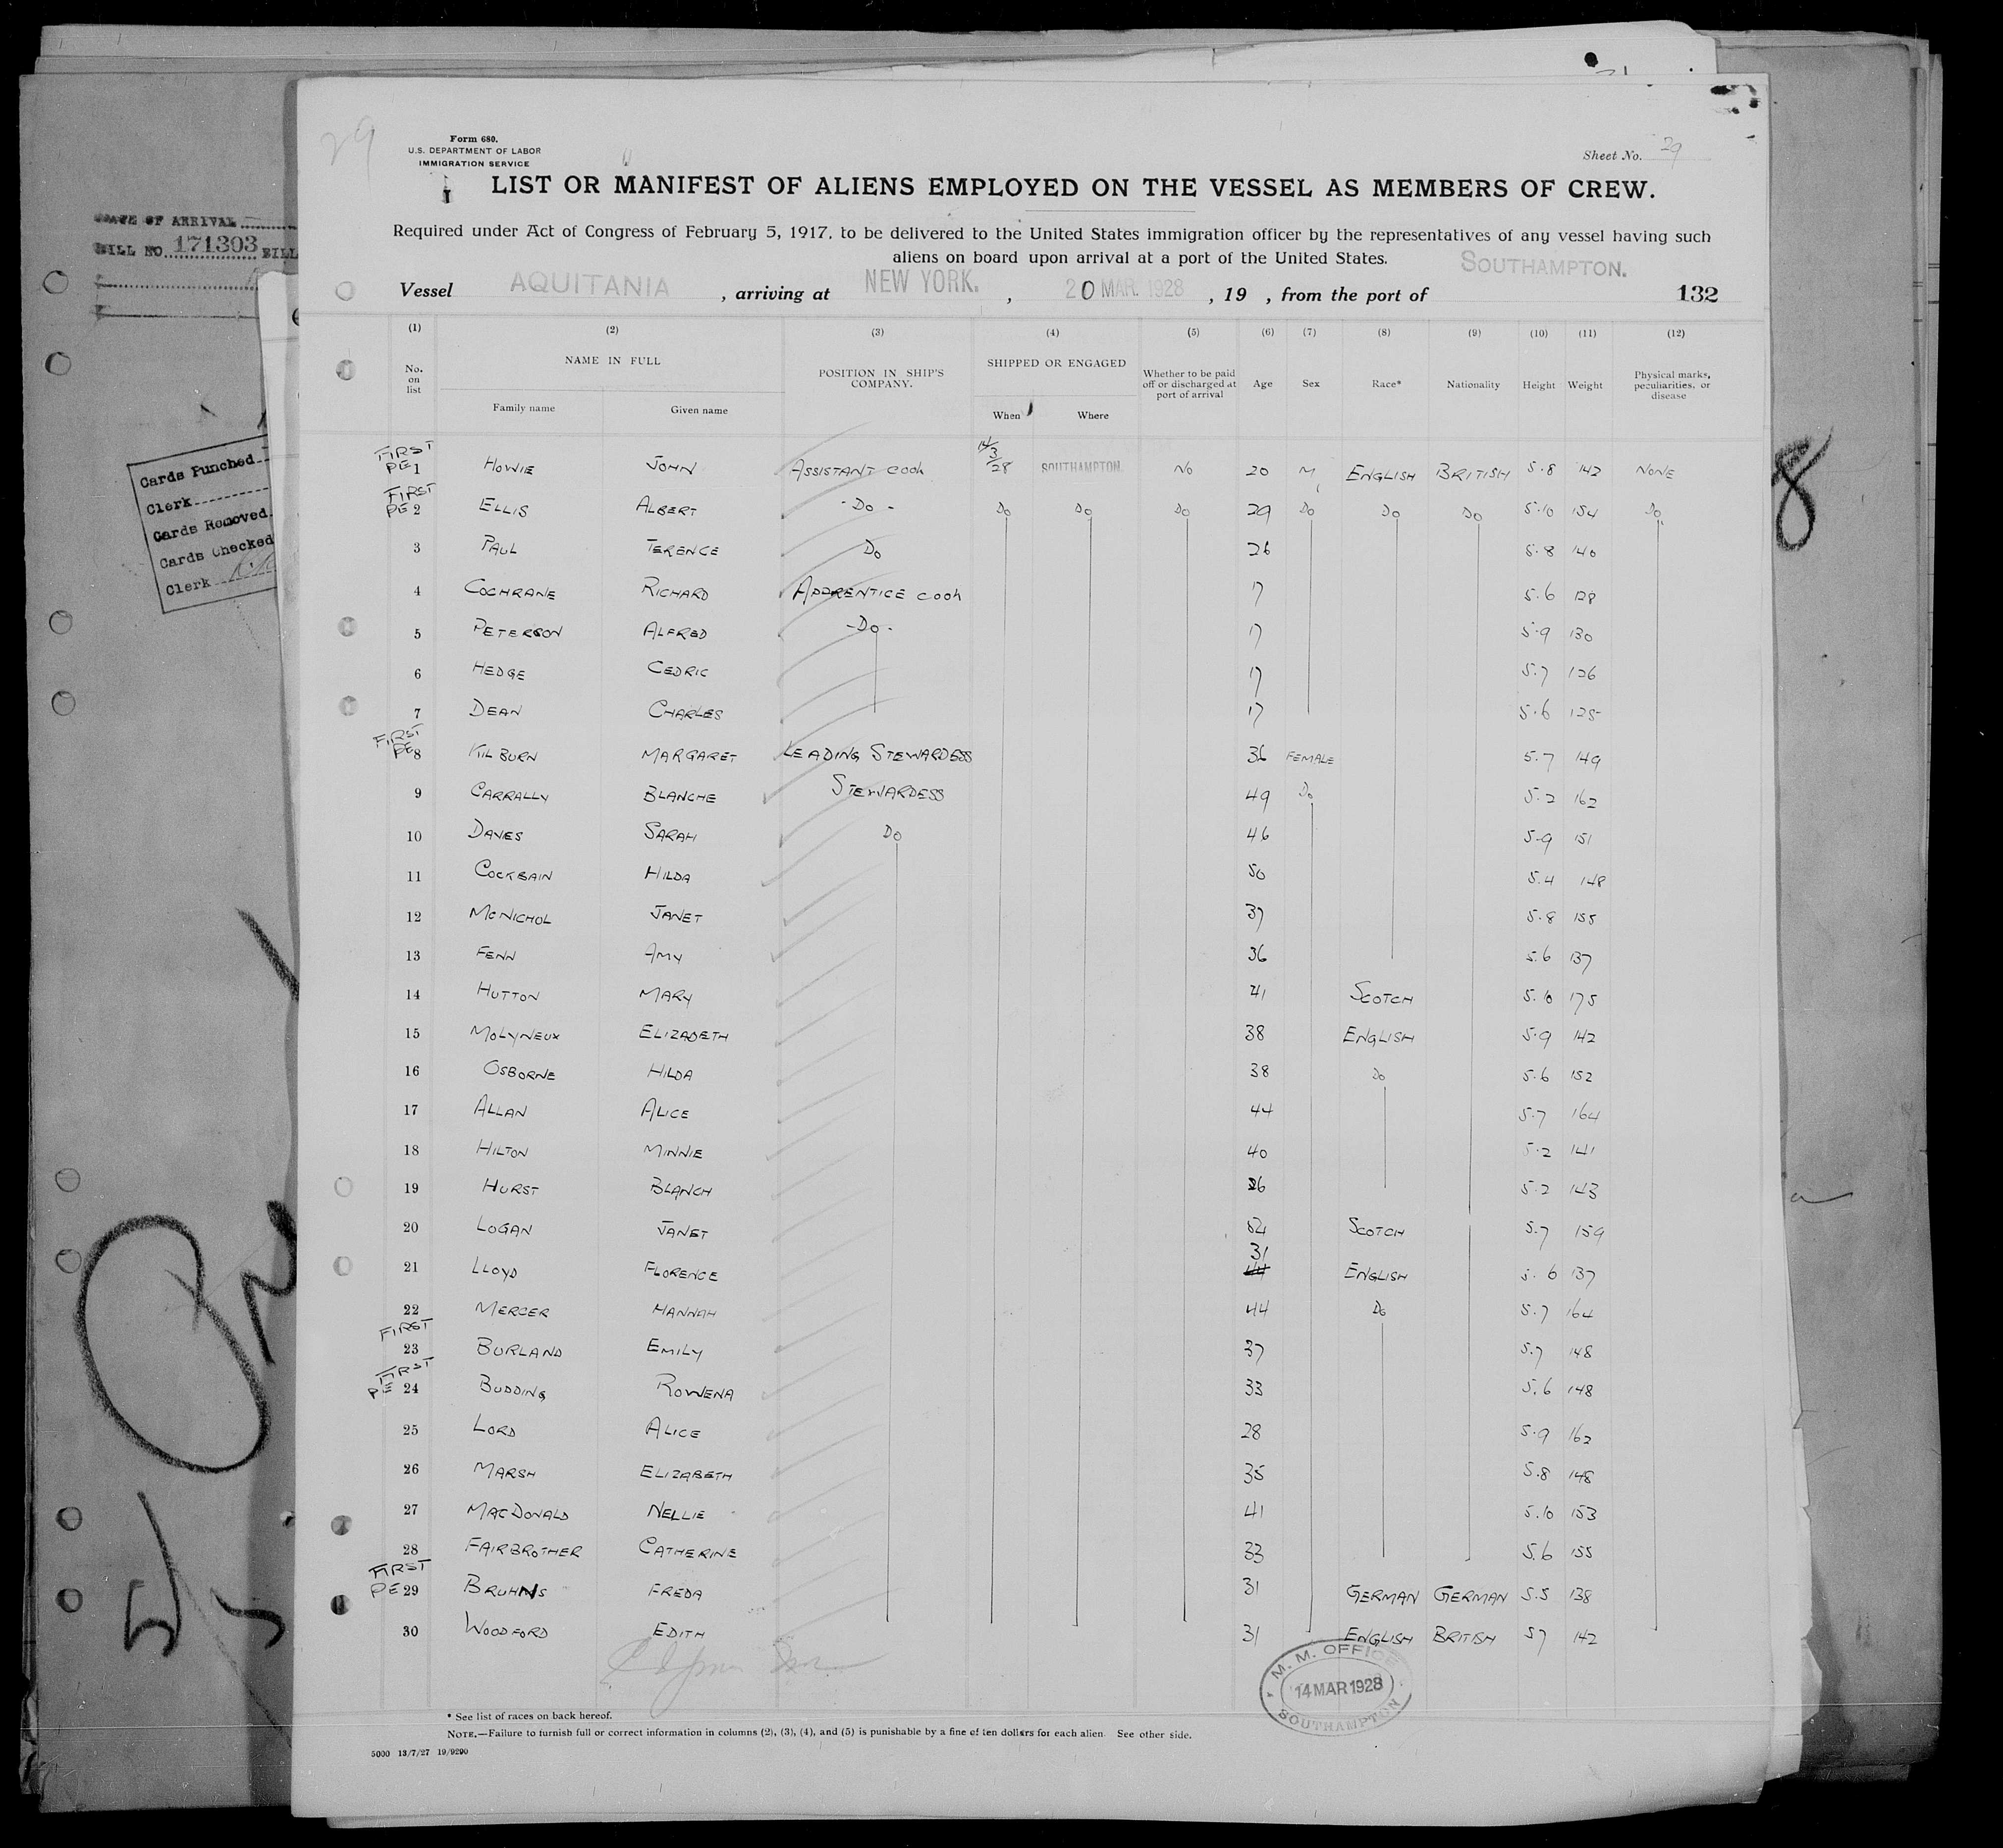 29
Form 680.
U.S. DEPARTMENT OF LABOR
IMMIGRATION SERVICE
Sheet No. 29
LIST OR MANIFEST OF ALIENS EMPLOYED ON THE VESSEL AS MEMBERS OF CREW.
Required under Act of Congress of February 5, 1917, to be delivered to the United States immigration officer by the representatives of any vessel having such
aliens on board upon arrival at a port of the United States.
Vessel AQUITANIA, arriving at NEW YORK., 20 MAR. 1928, 19 , from the port of SOUTHAMPTON. 132
(1) (2) (3) (4) (5) (6) (7) (8) (9) (10) (11) (12)
No. on list NAME IN FULL Family name Given name POSITION IN SHIP'S COMPANY. SHIPPED OR ENGAGED When Where Whether to be paid off or discharged at port of arrival Age Sex Race* Nationality Height Weight Physical marks, peculiarities, or disease
FIRST PE 1 HOWIE JOHN ASSISTANT COOK 14/3/28 SOUTHAMPTON. NO 20 M ENGLISH BRITISH 5.8 142 NONE
FIRST PE 2 ELLIS ALBERT - DO - DO DO DO 29 DO DO DO 5.10 154 DO
3 PAUL TERENCE DO 26 5.8 140
4 COCHRANE RICHARD APPRENTICE COOK 17 5.6 128
5 PETERSON ALFRED - DO - 17 5.9 130
6 HEDGE CEDRIC 17 5.7 126
7 DEAN CHARLES 17 5.6 125
FIRST PE 8 KILBURN MARGARET LEADING STEWARDESS 36 FEMALE 5.7 149
9 CARRALLY BLANCHE STEWARDESS 49 DO 5.2 162
10 DAVIES SARAH DO 46 5.9 151
11 COCKBAIN HILDA 50 5.4 148
12 MCNICHOL JANET 37 5.8 155
13 FENN AMY 36 5.6 137
14 HUTTON MARY 41 SCOTCH 5.10 175
15 MOLYNEUX ELIZABETH 38 ENGLISH 5.9 142
16 OSBORNE HILDA 38 DO 5.6 152
17 ALLAN ALICE 44 5.7 164
18 HILTON MINNIE 40 5.2 141
19 HURST BLANCH 36 5.2 143
20 LOGAN JANET 54 SCOTCH 5.7 159
21 LLOYD FLORENCE 31 44 ENGLISH 5.6 137
22 MERCER HANNAH 44 DO 5.7 164
FIRST 23 BURLAND EMILY 37 5.7 148
FIRST PE 24 BUDDING ROWENA 33 5.6 148
25 LORD ALICE 28 5.9 162
26 MARSH ELIZABETH 35 5.8 148
27 MACDONALD NELLIE 41 5.10 153
28 FAIRBROTHER CATHERINE 33 5.6 155
FIRST PE 29 BRUHNS FREDA 31 GERMAN GERMAN 5.5 138
30 WOODFORD EDITH 31 ENGLISH BRITISH 5 7 142
M. M. OFFICE
14 MAR 1928
SOUTHAMPTON
* See list of races on back hereof.
NOTE.—Failure to furnish full or correct information in columns (2), (3), (4), and (5) is punishable by a fine of ten dollars for each alien. See other side.
5000 13/7/27 19/9290
DATE OF ARRIVAL
BILL NO. 171303 BILL
Cards Punched
Clerk
Cards Removed
Cards Checked
Clerk
8